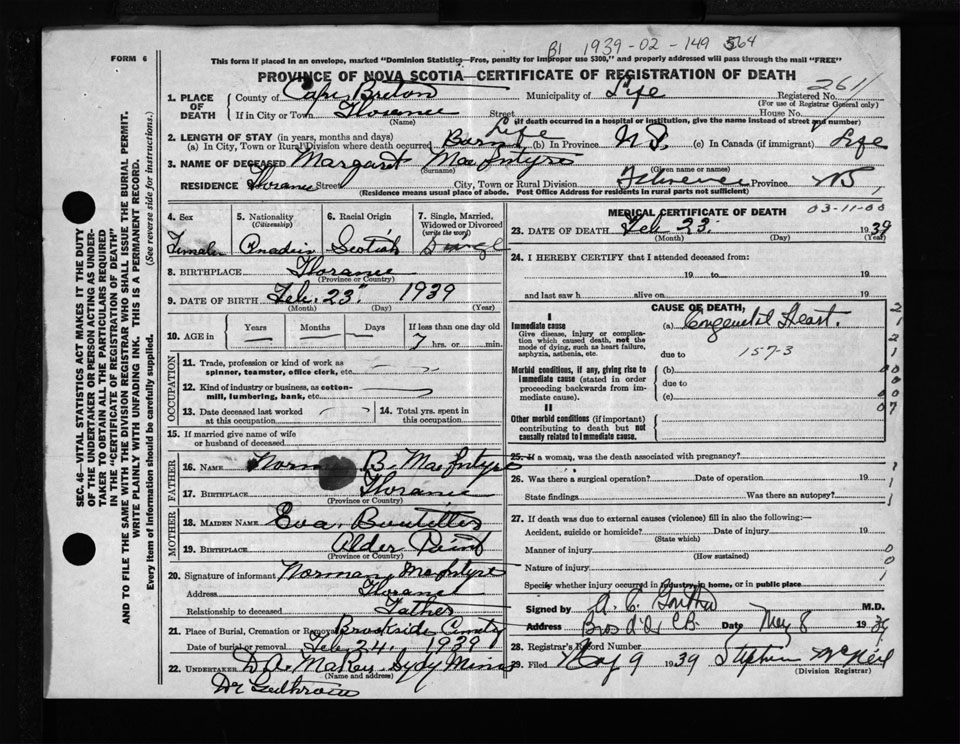 B1 1939-02-149564
FORM 6
This form if placed in an envelope, marked "Dominion Statistics—Free, penalty for improper use $300," and properly addressed will pass through the mail "FREE"
PROVINCE OF NOVA SCOTIA—CERTIFICATE OF REGISTRATION OF DEATH
261
1. PLACE OF DEATH County of Cape Breton Municipality of Life Registered No.
(For use of Registrar General only)
If in City or Town Florence Street House No.
(Name) (If death occurred in a hospital or institution, give the name instead of street and number)
2. LENGTH OF STAY (in years, months and days) Life
(a) In City, Town or Rural Division where death occurred (b) In Province N.S. (c) In Canada (if immigrant) Life
3. NAME OF DECEASED Margaret MacIntyre
(Surname) (Given name or names)
RESIDENCE Street City, Town or Rural Division Florence Province
(Residence means usual place of abode. Post Office Address for residents in rural parts not sufficient)
4. Sex 5. Nationality (Citizenship) 6. Racial Origin 7. Single, Married, Widowed or Divorced (write the word)
Female Canadian Scotish Single
8. BIRTHPLACE Florance
(Province or Country)
9. DATE OF BIRTH Feb. 23 1939
(Month) (Day) (Year)
10. AGE in Years Months Days If less than one day old
7 hrs. or min.
OCCUPATION
11. Trade, profession or kind of work as spinner, teamster, office clerk, etc.
12. Kind of industry or business, as cotton-mill, lumbering, bank, etc.
13. Date deceased last worked at this occupation 14. Total yrs. spent in this occupation
15. If married give name of wife or husband of deceased
FATHER
16. NAME Norman B. MacIntyre
17. BIRTHPLACE Florance
(Province or Country)
MOTHER
18. MAIDEN NAME Eva Boutilier
19. BIRTHPLACE Alder Point
(Province or Country)
20. Signature of informant Norman MacIntyre
Address Florance
Relationship to deceased Father
21. Place of Burial, Cremation or Removal Brookside Cemetery
Date of burial or removal Feb 24. 1939
22. UNDERTAKER Sydy Mines
(Name and address)
MEDICAL CERTIFICATE OF DEATH 03-11-00
23. DATE OF DEATH Feb 23 1939
(Month) (Day) (Year)
24. I HEREBY CERTIFY that I attended deceased from:
19 to 19
and last saw h alive on 19
CAUSE OF DEATH,
I
Immediate cause (a) Congenital Heart.
Give disease, injury or complication which caused death, not the mode of dying, such as heart failure, asphyxia, asthenia, etc.
due to 157-3
Morbid conditions, if any, giving rise to immediate cause (stated in order proceeding backwards from immediate cause).
(b)
due to
(c)
II
Other morbid conditions (if important) contributing to death but not causally related to immediate cause.
25. If a woman, was the death associated with pregnancy?
26. Was there a surgical operation? Date of operation 19
State findings Was there an autopsy?
27. If death was due to external causes (violence) fill in also the following:—
Accident, suicide or homicide? Date of injury 19
(State which)
Manner of injury
(How sustained)
Nature of injury
Specify whether injury occurred in industry, in home, or in public place
Signed by M.D.
Address Bras d'Or CB. Date May 8 1939
28. Registrar's Record Number
29. Filed May 9 1939 Stephen McNeil
(Division Registrar)
SEC. 46—VITAL STATISTICS ACT MAKES IT THE DUTY OF THE UNDERTAKER OR PERSON ACTING AS UNDERTAKER TO OBTAIN ALL THE PARTICULARS REQUIRED IN THE "CERTIFICATE OF REGISTRATION OF DEATH" AND TO FILE THE SAME WITH THE DIVISION REGISTRAR WHO SHALL ISSUE THE BURIAL PERMIT.
WRITE PLAINLY WITH UNFADING INK. THIS IS A PERMANENT RECORD.
Every item of information should be carefully supplied. (See reverse side for instructions.)